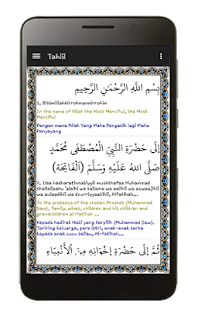 Tahlil
بِسْمِ اللَّهِ الرَّحْمَنِ الرَّحِيمِ
1. Bismillahirrahmanirrahim
In the name of Allah the Most Merciful, the Most
Merciful
Dengan nama Allah Yang Maha Pengasih lagi Maha
Penyayang
إِلَى حَضْرَةِ النَّبِيِّ الْمُصْطَفَى مُحَمَّدٍ
صَلَّى اللَّهُ عَلَيْهِ وَسَلَّمَ (الْفَاتِحَةُ)
2. Ilaa hadlratinnabiyyil mushthafaa Muhammad
To the presence of the chosen Prophet (Muhammad
Saw), family, wives, children and his children and
grandchildren al-fatihah ....
Kepada hadirat Nabi yang terpilih (Muhammad Saw),
Teriring keluarga, para istri, anak-anak serta
kepada anak cucu beliau, Al-fatihah....
ثُمَّ إِلَى حَضْرَةِ إِخْوَانِهِ مِنَ الْأَنْبِيَاءِ